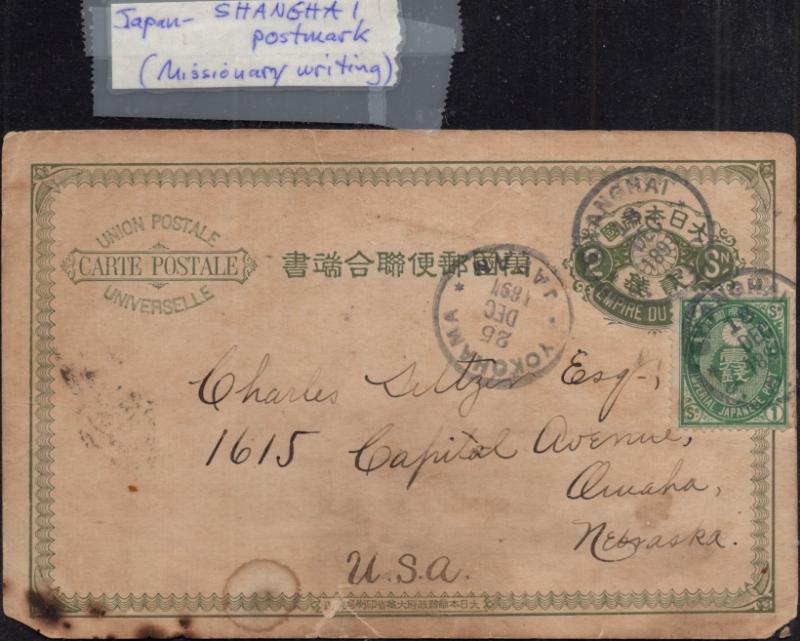 Japan- SHANGHAI
postmark
(Missionary writing)
UNION POSTALE
CARTE POSTALE
UNIVERSELLE
書端合聯便郵國萬
國帝本日大
2 Sn
貳錢
EMPIRE DU
SHANGHAI
DEC
189
YOKOHAMA
25
DEC
1891
JAPAN
SHANGHAI
壹銭
JAPANESE
1
Charles Seltzer Esq.,
1615 Capitol Avenue,
Omaha,
Nebraska.
U.S.A.